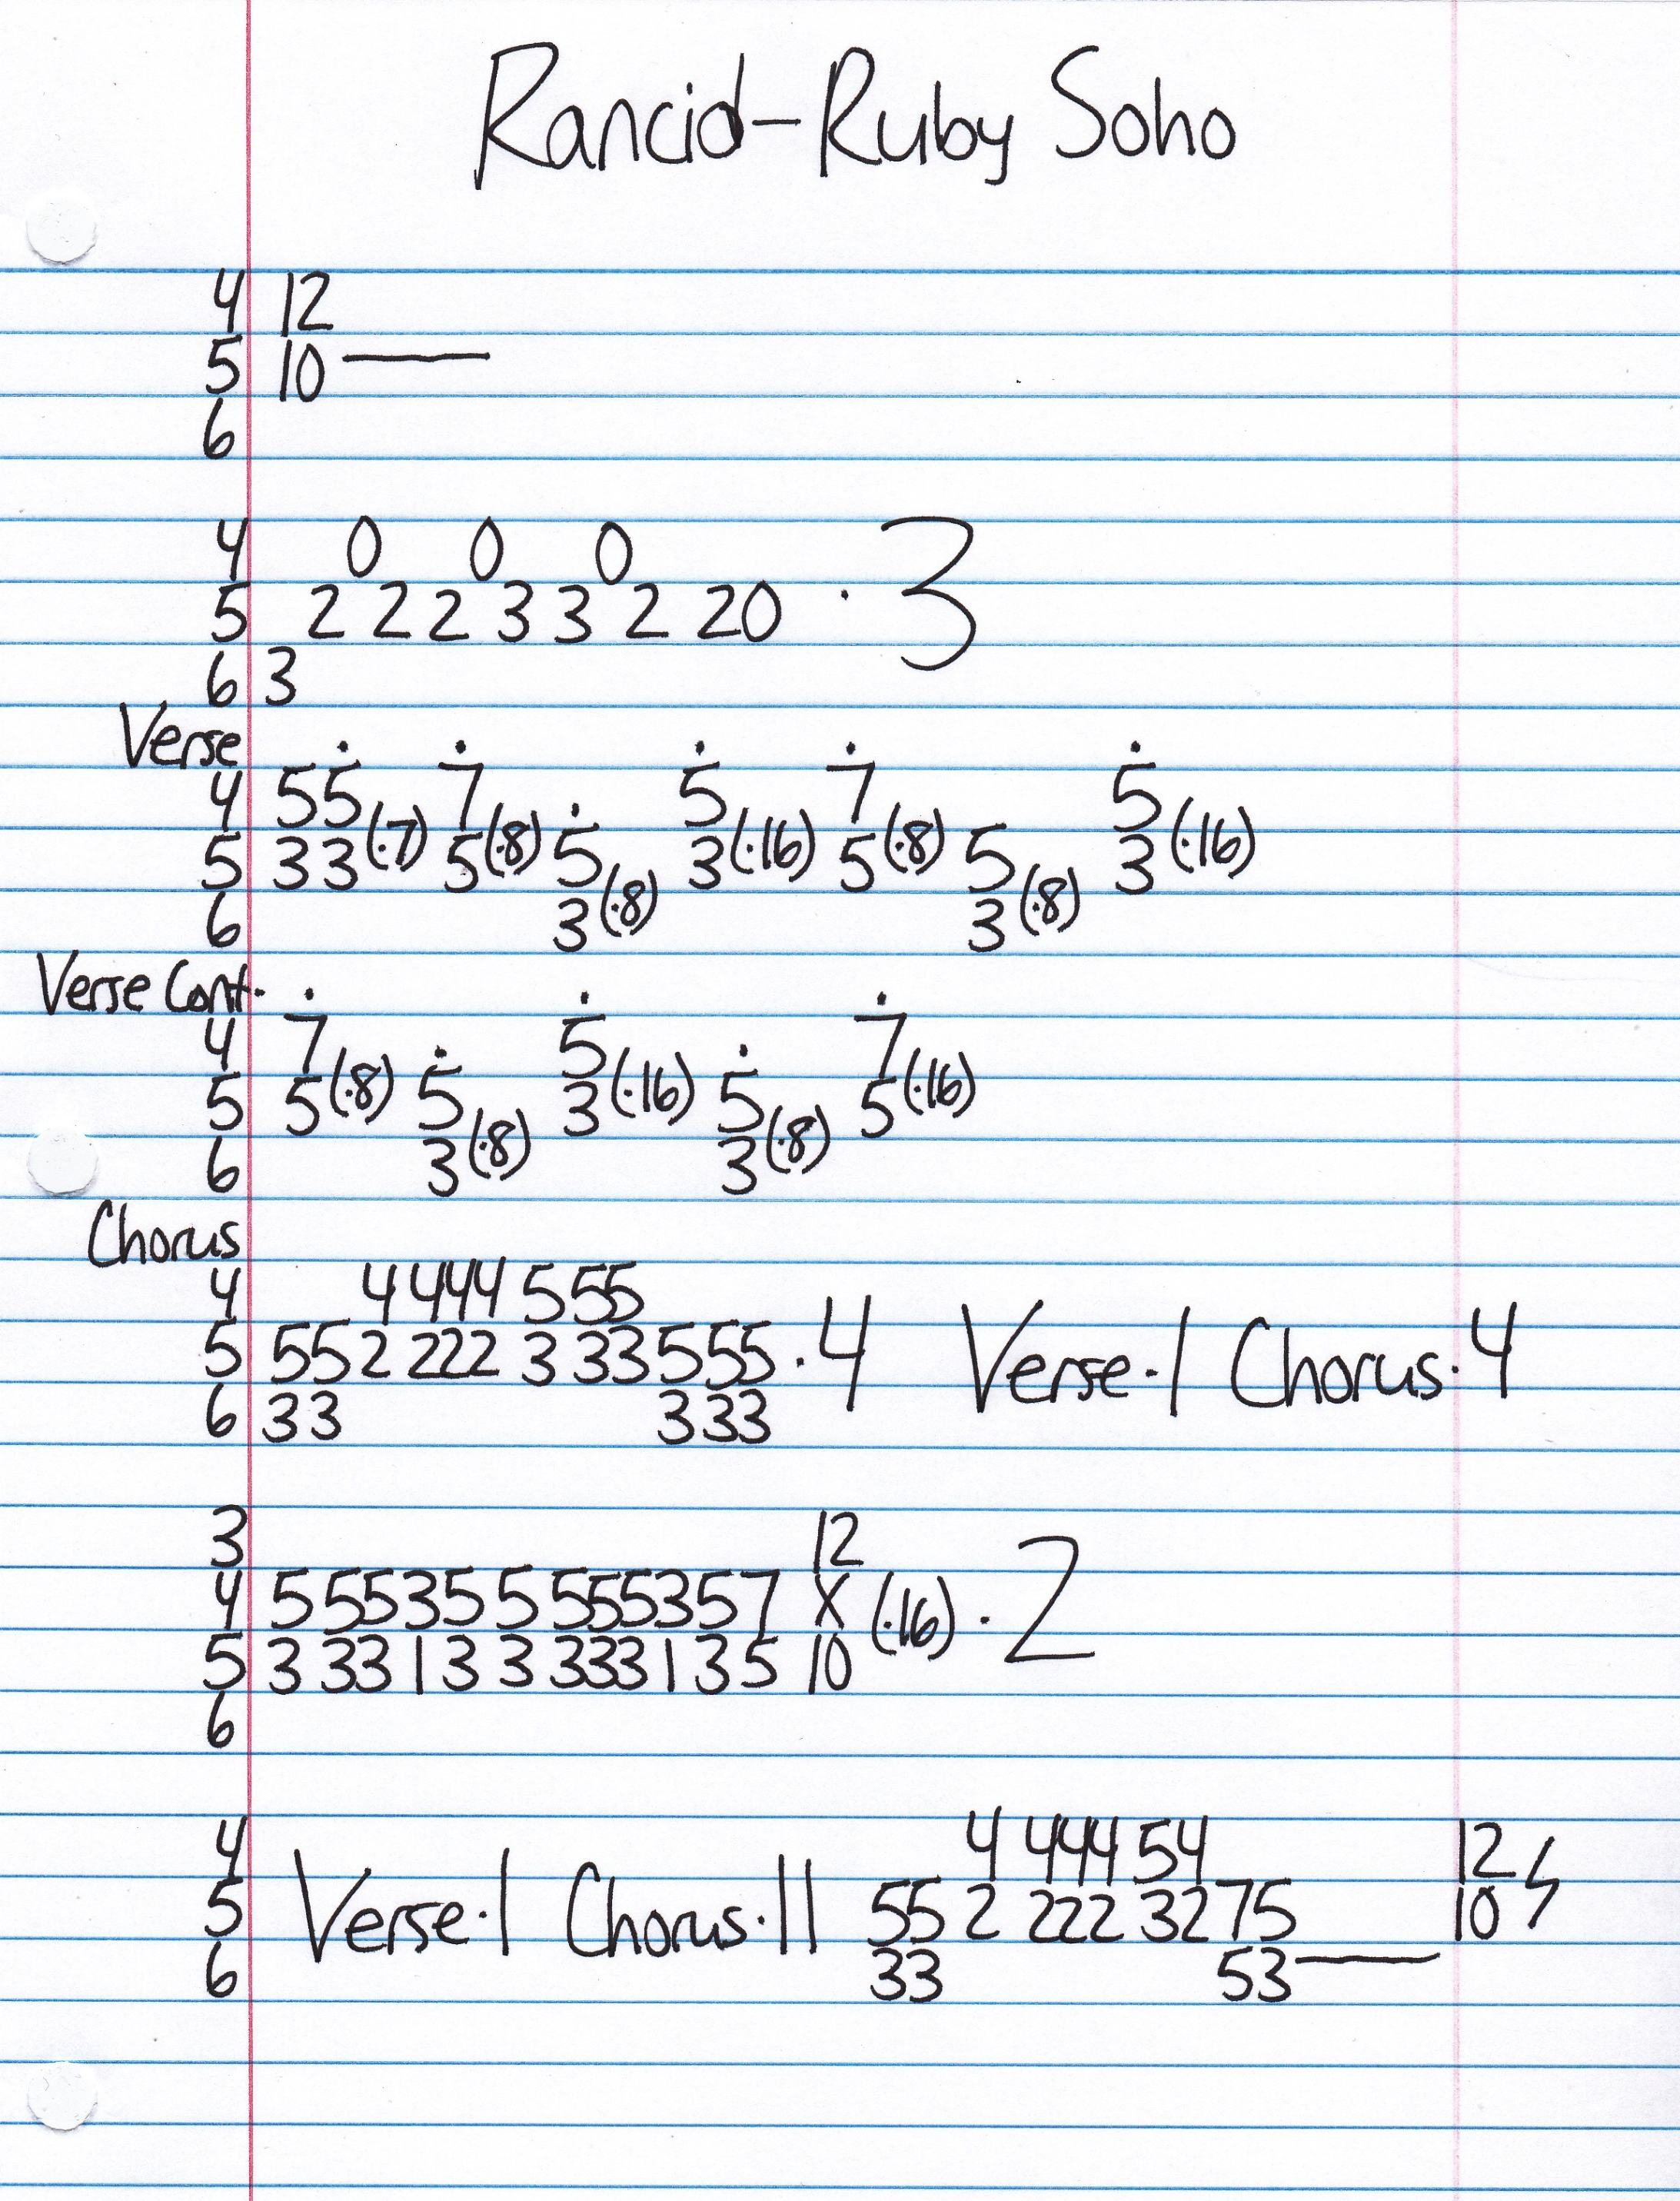 Rancid-Ruby Soho
4 12
5 10 ——
6
4 0 0 0
5 2 2 2 3 3 2 20 · 3
6 3
Verse
4 55 7 5 7 5
5 33(·7) 5(·8) 5 3(·16) 5(·8) 5 3(·16)
6 3(·8) 3(·8)
Verse Cont.
4 7 5 7
5 5(·8) 5 3(·16) 5 5(·16)
6 3(·8) 3(·8)
Chorus
4 4 444 5 55
5 55 2 222 3 33 555 · 4 Verse·1 Chorus·4
6 33 333
3 12
4 5 55 3 5 5 555 3 5 7 X (·16) · 2
5 3 33 1 3 3 333 1 3 5 10
6
4 4 444 54 12
5 Verse·1 Chorus·11 55 2 222 32 75 10
6 33 53 ——